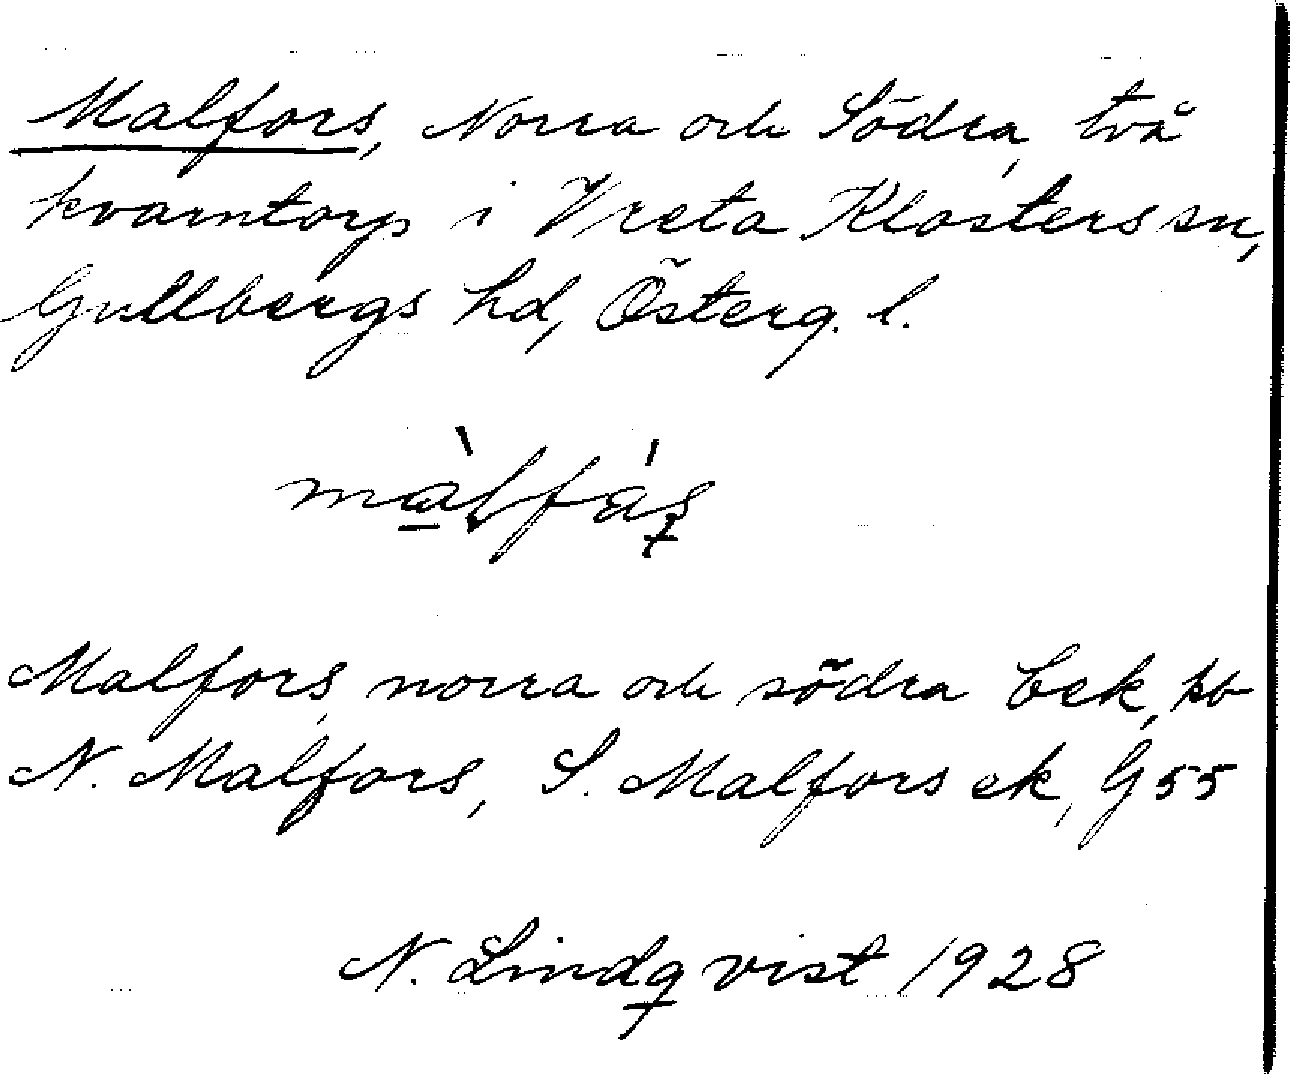 Malfors, Norra och Södra, två
kvarntorp i Vreta Klosters sn,
Gullbergs hd, Österg. l.
Malfors, norra och södra Cek, kb
N. Malfors, S. Malfors ek, G 55
N. Lindqvist 1928